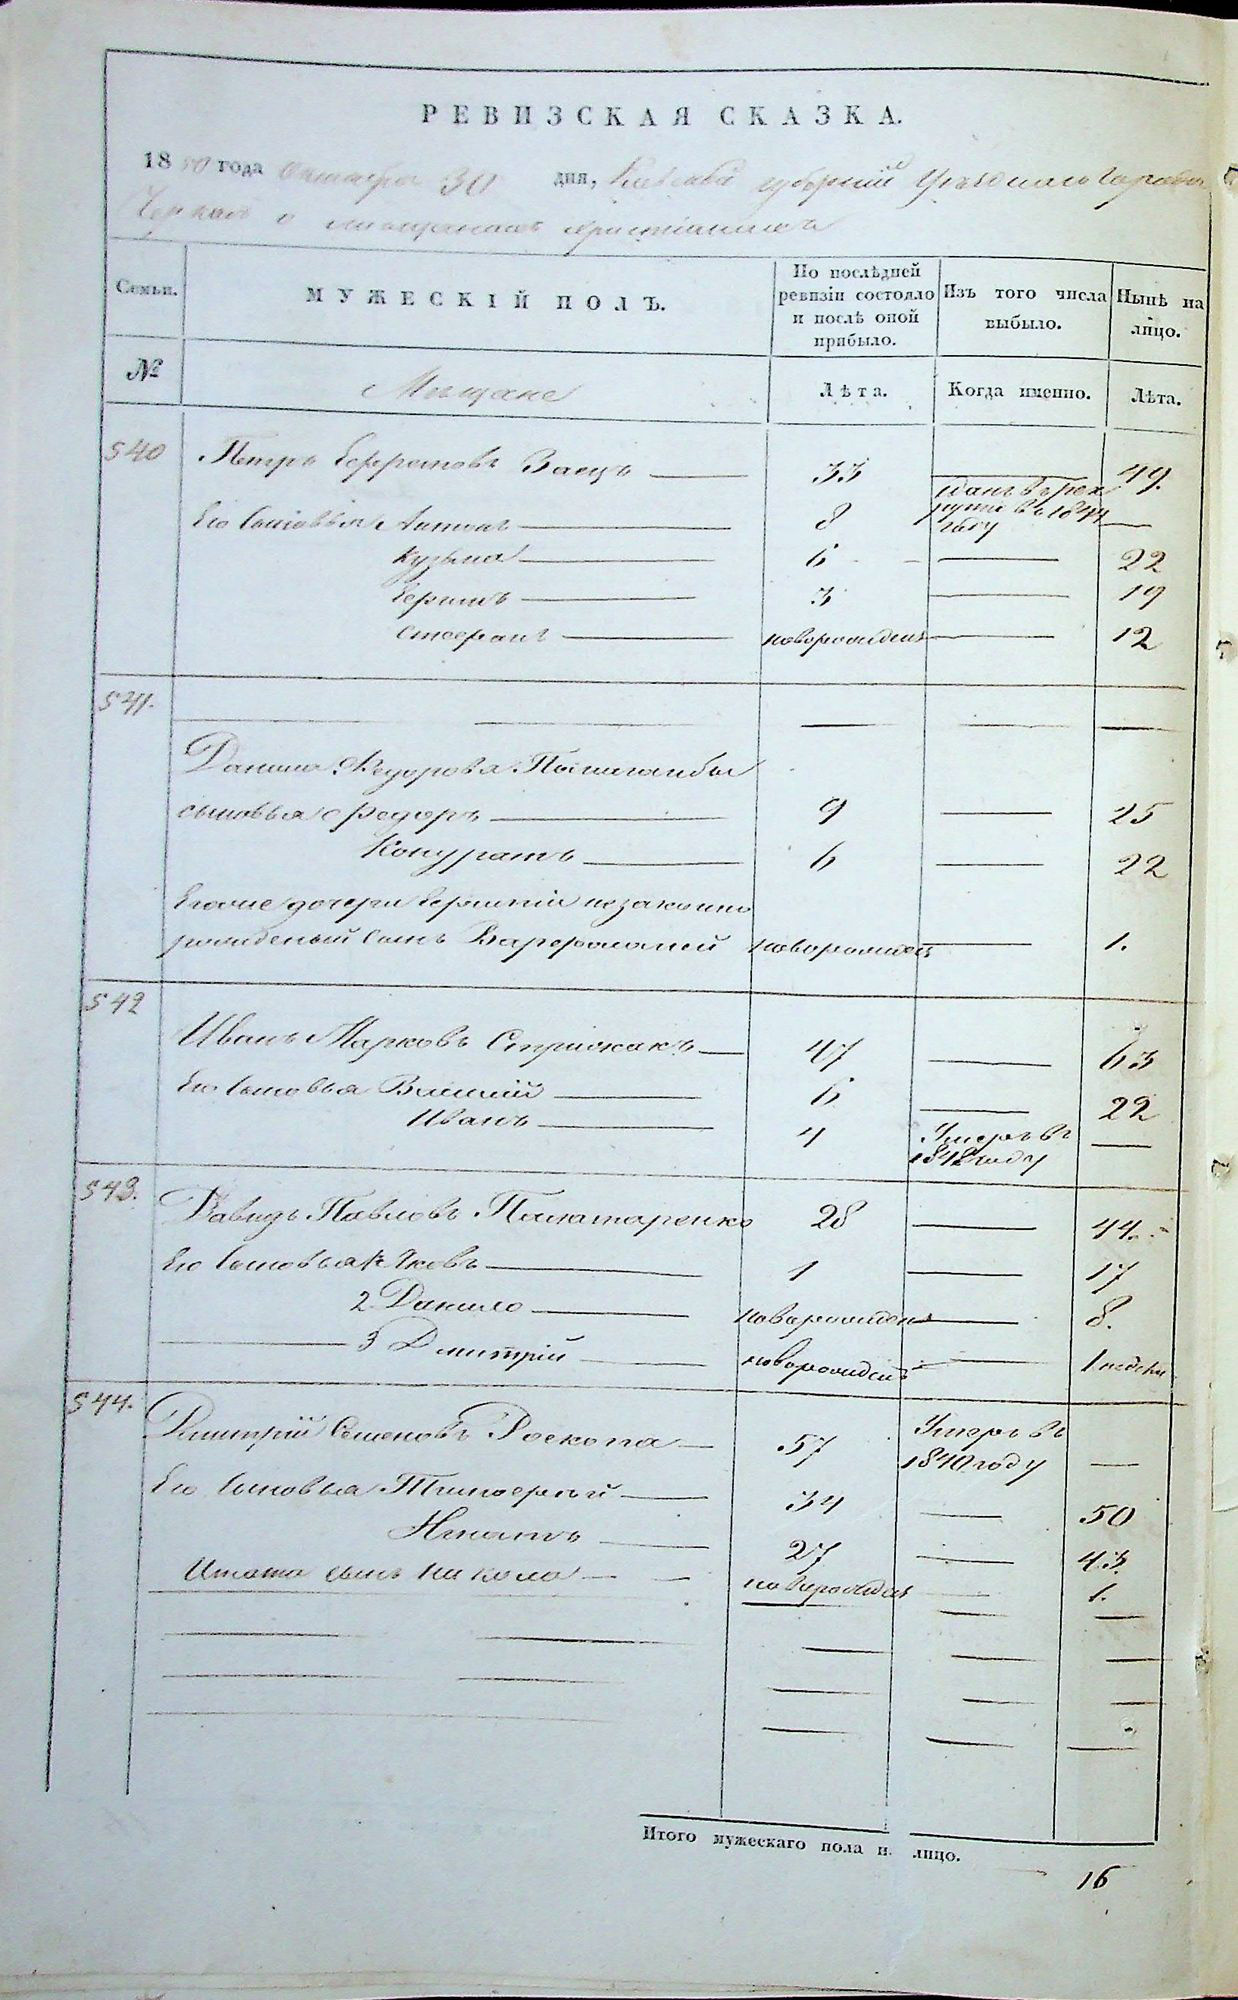 РЕВИЗСКАЯ СКАЗКА.
1850 года Октября 30 дня, Киевской губернии Уѣзднаго города
Черкасъ о мѣщанахъ христіанахъ
Семьи. МУЖЕСКІЙ ПОЛЪ. По послѣдней ревизіи состояло и послѣ оной прибыло. Изъ того числа выбыло. Нынѣ на лицо.
№ Мѣщане Лѣта. Когда именно. Лѣта.
540 Петръ Ефремовъ Заецъ 33 49.
Его сыновья Антонъ 8 сданъ въ рекруты въ 1844 году
Кузьма 6 22
3 19
Стефанъ новорожденъ 12
541.
Данила Федорова
сыновья Федоръ 9 25
Кондратъ 6 22
Егоже дочери незаконно
рожденый сынъ Варфоломей новорожден 1.
542
Иванъ Марковъ 47 63
Его сыновья Василій 6 22
Иванъ 4 Умеръ въ 1848 году
543. Давидъ Павловъ 28 44.
Его сыновья Яковъ 1 17
2 Данило новорожденъ 8.
3 Дмитрій новорожденъ 1 недели
544. Дмитрій Семеновъ Роскопа 57 Умеръ въ 1840 году
Его сыновья Тимофей 34 50
Игнатъ 27 43.
Игната сынъ Никола новорожден 1.
Итого мужескаго пола н. лицо. 16